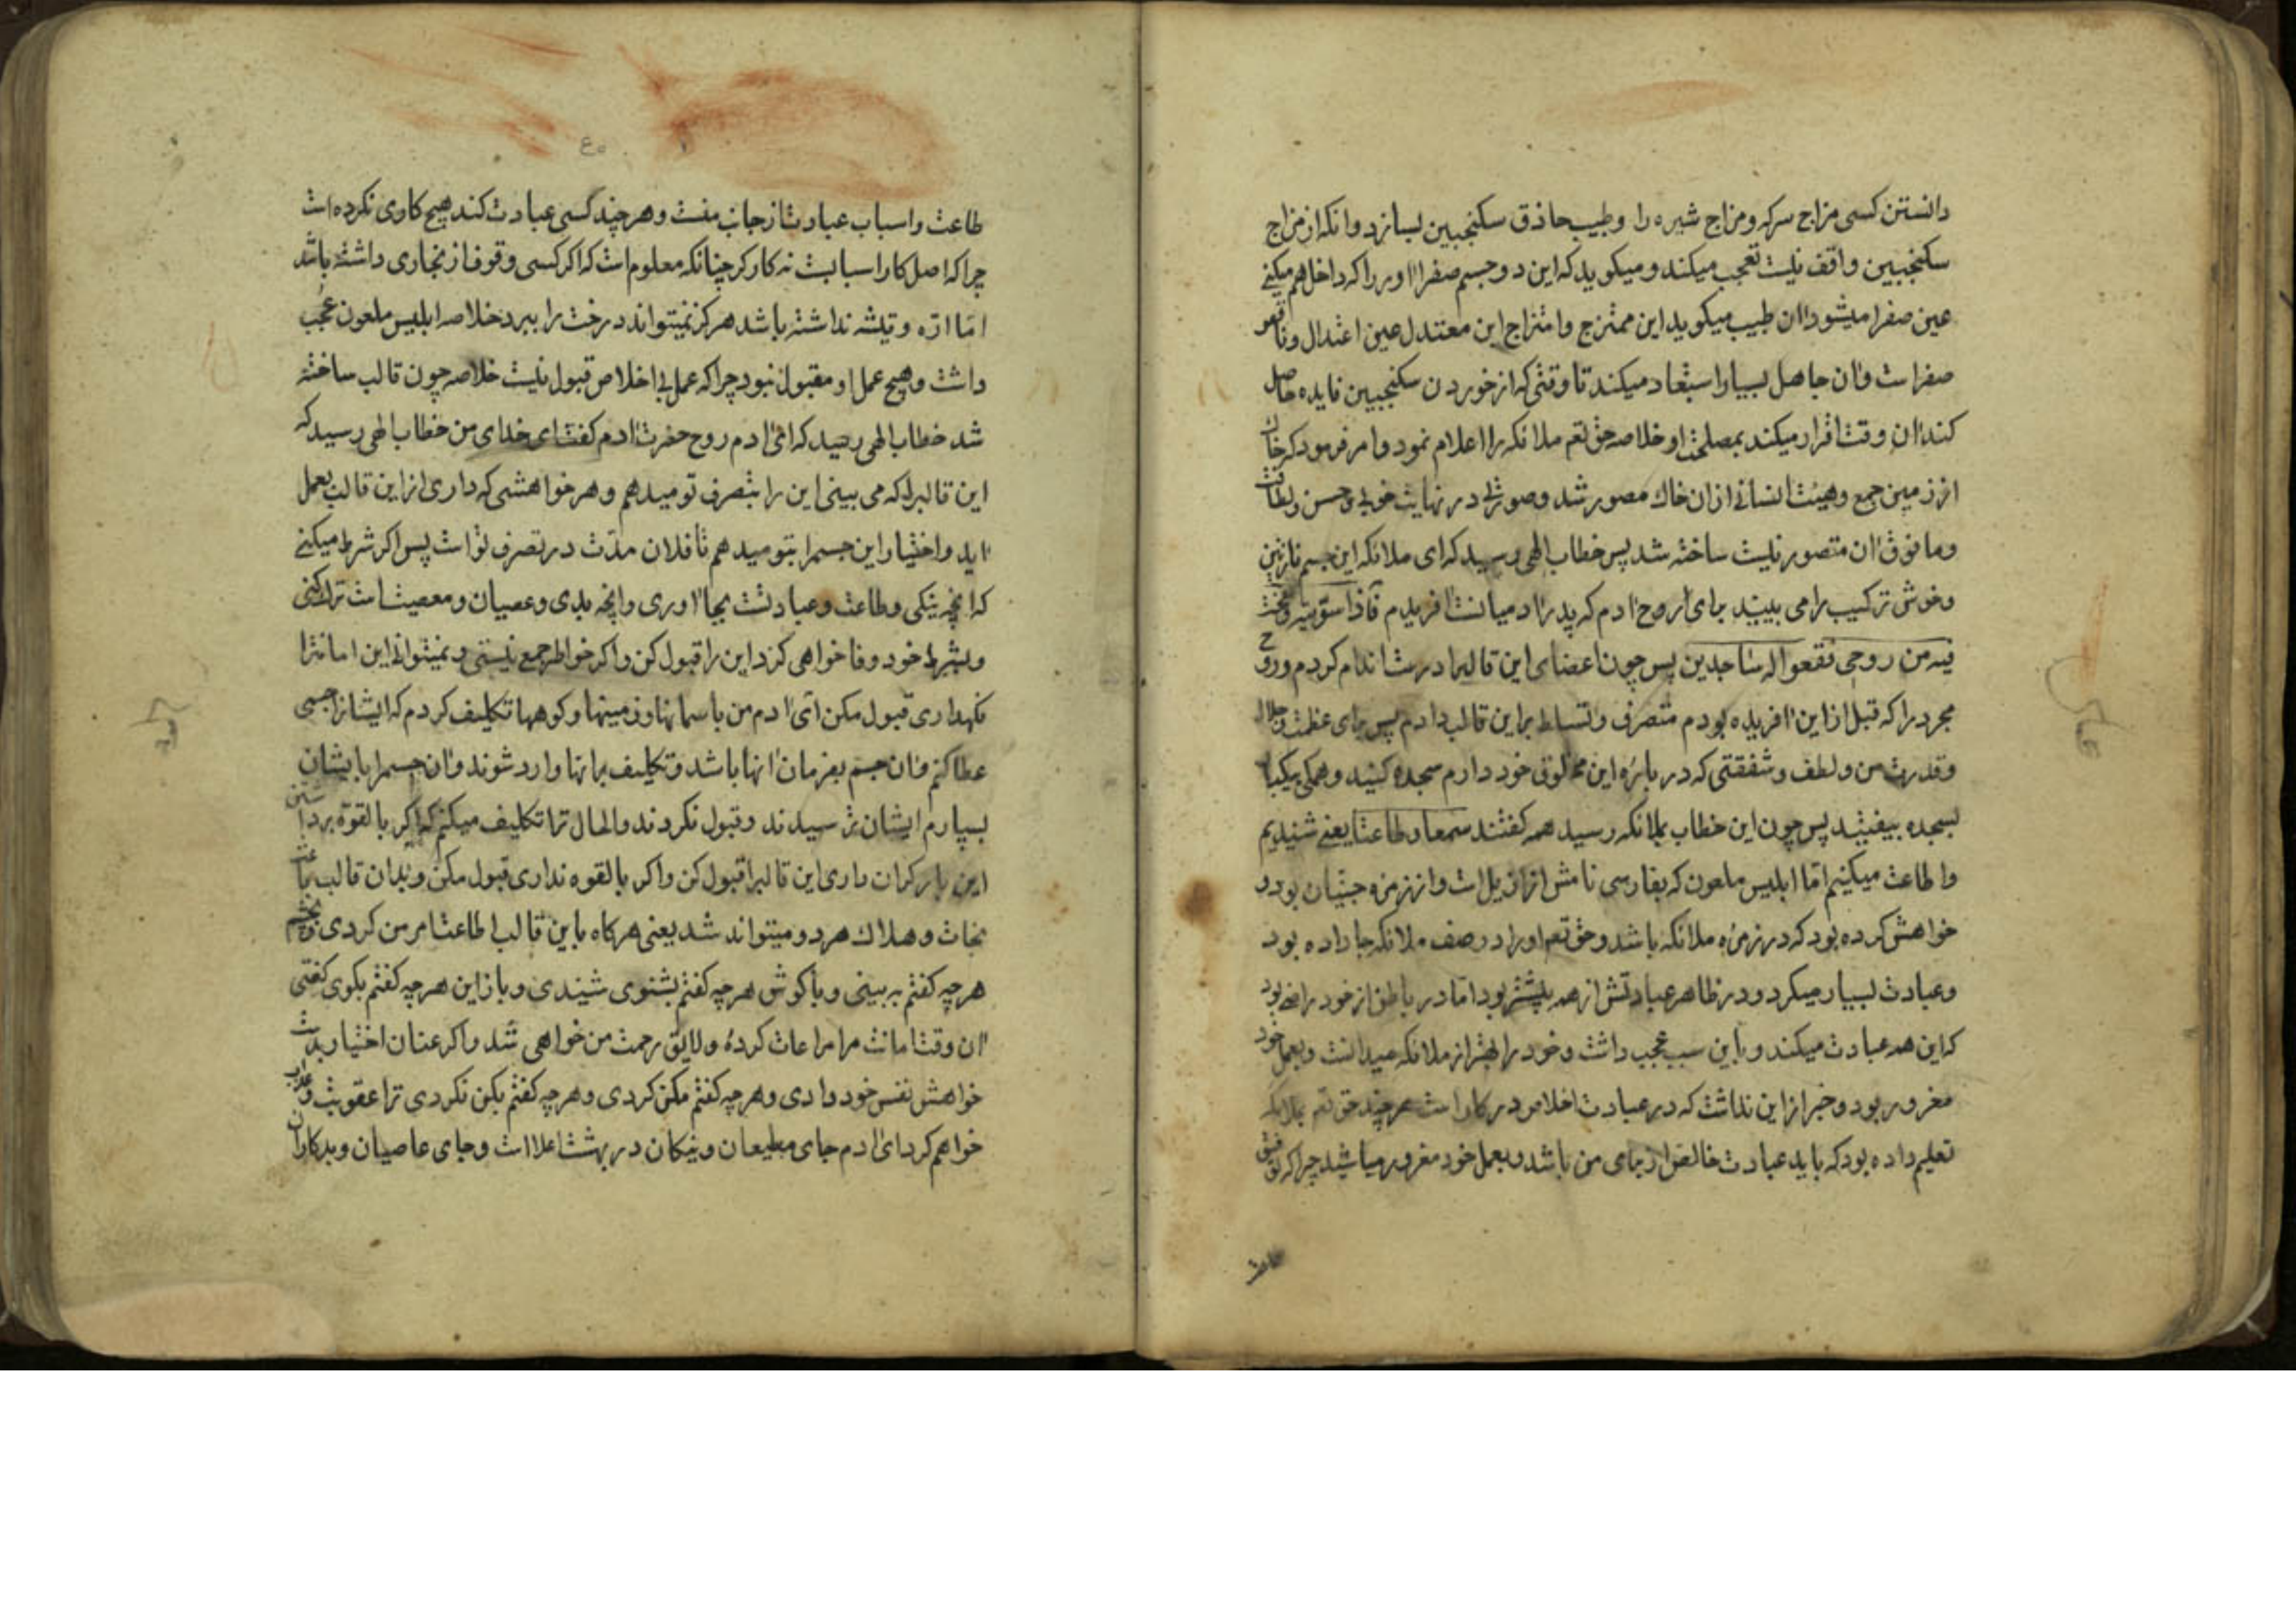 دانستن کسی مزاج سرکه و مزاج شیره را و طبیب حاذق سکنجبین بسازد و انکه از مزاج
سکنجبین واقف نیست تعجب میکند و میکوید که این دو جسم صفرا اور را که داخل هم میکنی
عین صفرا میشود ان طبیب میکوید این ممتزج و امتزاج این معتدل عین اعتدال و نافع
صفراست و ان جاهل بسیار استبعاد میکند تا وقتی که از خوردن سکنجبین فایده حاصل
کند ان وقت اقرار میکند بمصلحت او خلاصه حق تعم ملائکه را اعلام نمود و امر فرمود که خاک
از زمین جمع و هیئت انسانی از ان خاک مصور شد و صورتی در نهایت خوبی و حسن و لطافت
و ما فوق ان متصور نیست ساخته شد پس خطاب الهی رسید که ای ملائکه این جسم نازنین
و خوش ترکیب را می بینید برای روح ادم که پدر ادمیانست افریدم فاذا سویته و نفخت
فیه من روحی فقعوا له ساجدین پس چون اعضای این قالبرا درست اندام کردم و روح
مجرد را که قبل از این افریده بودم متصرف و تسلط براین قالب دادم پس برای عظمت و جلال
و قدرت من و لطف و شفقتی که در باره این مخلوق خود دارم سجده کنید و همکی بیکبار
بسجده بیفتید پس چون این خطاب بملائکه رسید همه کفتند سمعا و طاعتا یعنی شنیدیم
و اطاعت میکنیم اما ابلیس ملعون که بفارسی نامش ازازیل است و از زمره جنیان بود و
خواهش کرده بود که در زمره ملائکه باشد و حق تعم او را در صف ملائکه جا داده بود
و عبادت بسیار میکرد و در ظاهر عبادتش از همه بیشتر بود اما در باطن از خود راضی بود
که این همه عبادت میکند و باین سبب عجب داشت و خود را بهتر از ملائکه میدانست و بعمل خود
مغرور بود و خبر از این نداشت که در عبادت اخلاص در کار است هر چند حق تعم بملائکه
تعلیم داده بود که باید عبادت خالص از برای من باشد و بعمل خود مغرور مباشید چرا که توفیق
طاعت
طاعت و اسباب عبادت از جانب منست و هر چند کسی عبادت کند هیچ کاری نکرده است
چرا که اصل کار اسبابست نه کارکر چنانکه معلوم است که اکر کسی وقوف از نجاری داشته باشد
اما اره و تیشه نداشته باشد هرکز نمیتواند درخت را ببرد خلاصه ابلیس ملعون عجب
داشت و هیچ عمل او مقبول نبود چرا که عمل بی اخلاص قبول نیست خلاصه چون قالب ساخته
شد خطاب الهی رسید که ای ادم روح حضرت ادم کفت ای خدای من خطاب الهی رسید که
این قالبرا که می بینی این را بتصرف تو میدهم و هر خواهشی که داری از این قالب بعمل
اید و اختیار این جسمرا بتو میدهم تا فلان مدت در تصرف تو است پس اکر شرط میکنی
که انچه نیکی و طاعت و عبادتست بجا اوری و انچه بدی و عصیان و معصیت است ترک کنی
و بشرط خود وفا خواهی کرد این را قبول کن و اکر خواطر جمع نیستی و نمیتوانی این امانترا
نکهداری قبول مکن ای ادم من باسمانها و زمینها و کوهها تکلیف کردم که ایشانرا جسمی
عطا کنم و ان جسم بفرمان انها باشد و تکلیف برانها وارد شوند و ان جسمرا بایشان
بسپارم ایشان ترسیدند و قبول نکردند و الحال ترا تکلیف میکنم که اکر بالقوة برداشتن
این بار کران داری این قالبرا قبول کن و اکر بالقوه نداری قبول مکن و بدان قالب باعث
نجات و هلاک هر دو میتواند شد یعنی هرکاه باین قالب اطاعت امر من کردی و بچشم
هر چه کفتم ببینی و با کوش هر چه کفتم بشنوی شنیدی و بازاین هر چه کفتم بکوی کفتی
ان وقت امانت مرا مراعات کردهٔ و لایق رحمت من خواهی شد و اکر عنان اختیار بدست
خواهش نفس خود دادی و هر چه کفتم مکن کردی و هر چه کفتم بکن نکردی ترا عقوبت و عذاب
خواهم کرد ای ادم جای مطیعان و نیکان در بهشت اعلا است و جای عاصیان و بدکاران